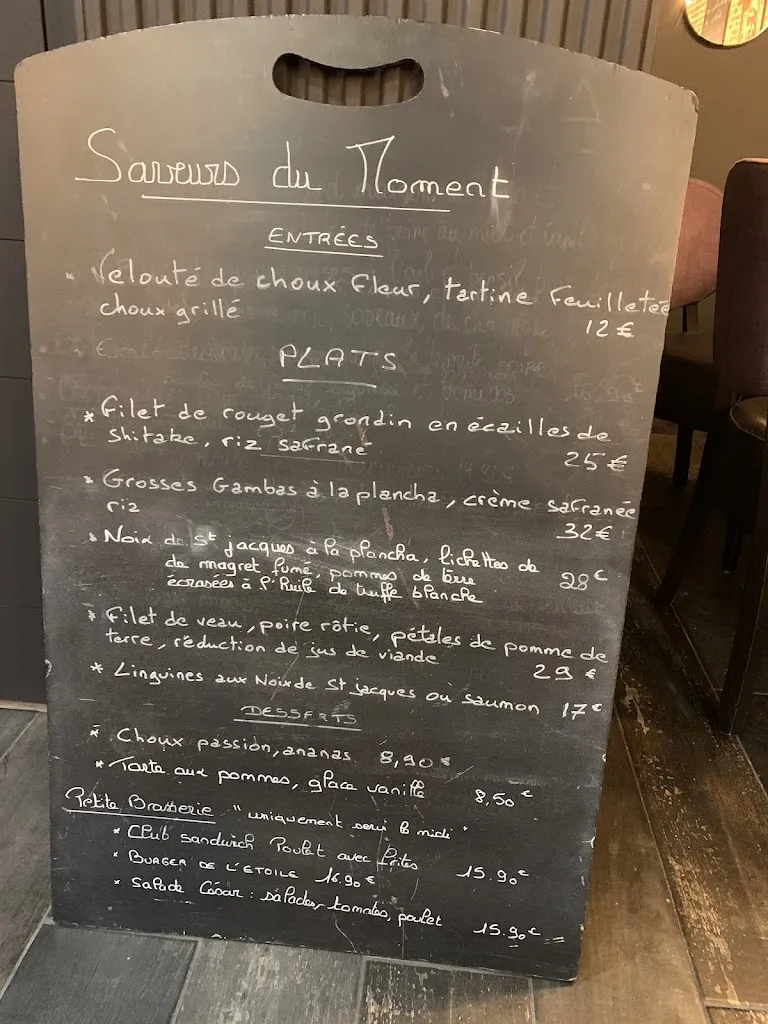 Saveurs du Moment
ENTRÉES
* Velouté de choux fleur, tartine feuilletée
choux grillé
12 €
PLATS
* Filet de rouget grondin en écailles de
shitake, riz safrané
25 €
* Grosses Gambas à la plancha, crème safranée
riz
32 €
* Noix de St jacques à la plancha, lichettes de
de magret fumé, pommes de terre
28 €
écrasées à l'huile de truffe blanche
* Filet de veau, poire rôtie, pétales de pomme de
terre, réduction de jus de viande
29 €
* Linguines aux Noix de St jacques ou saumon 17 €
DESSERTS
* Choux passion, ananas 8,90 €
* Tarte aux pommes, glace vanille 8,50 €
Petite Brasserie "uniquement servi le midi"
* Club sandwich Poulet avec frites 15.90 €
* BURGER DE L'ETOILE 16.90 €
* Salade César : salades, tomates, poulet 15.90 €